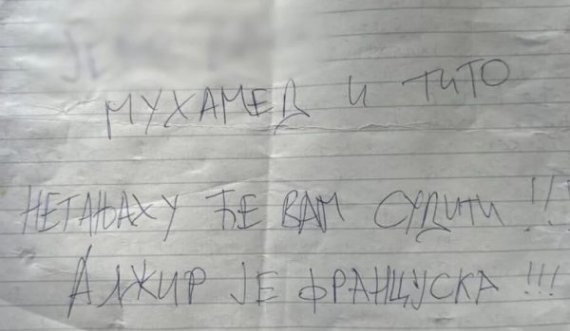 МУХАМЕД И ТИТО
НЕТАЊАХУ ЋЕ ВАМ СУДИТИ !!!
АЛЖИР ЈЕ ФРАНЦУСКА !!!